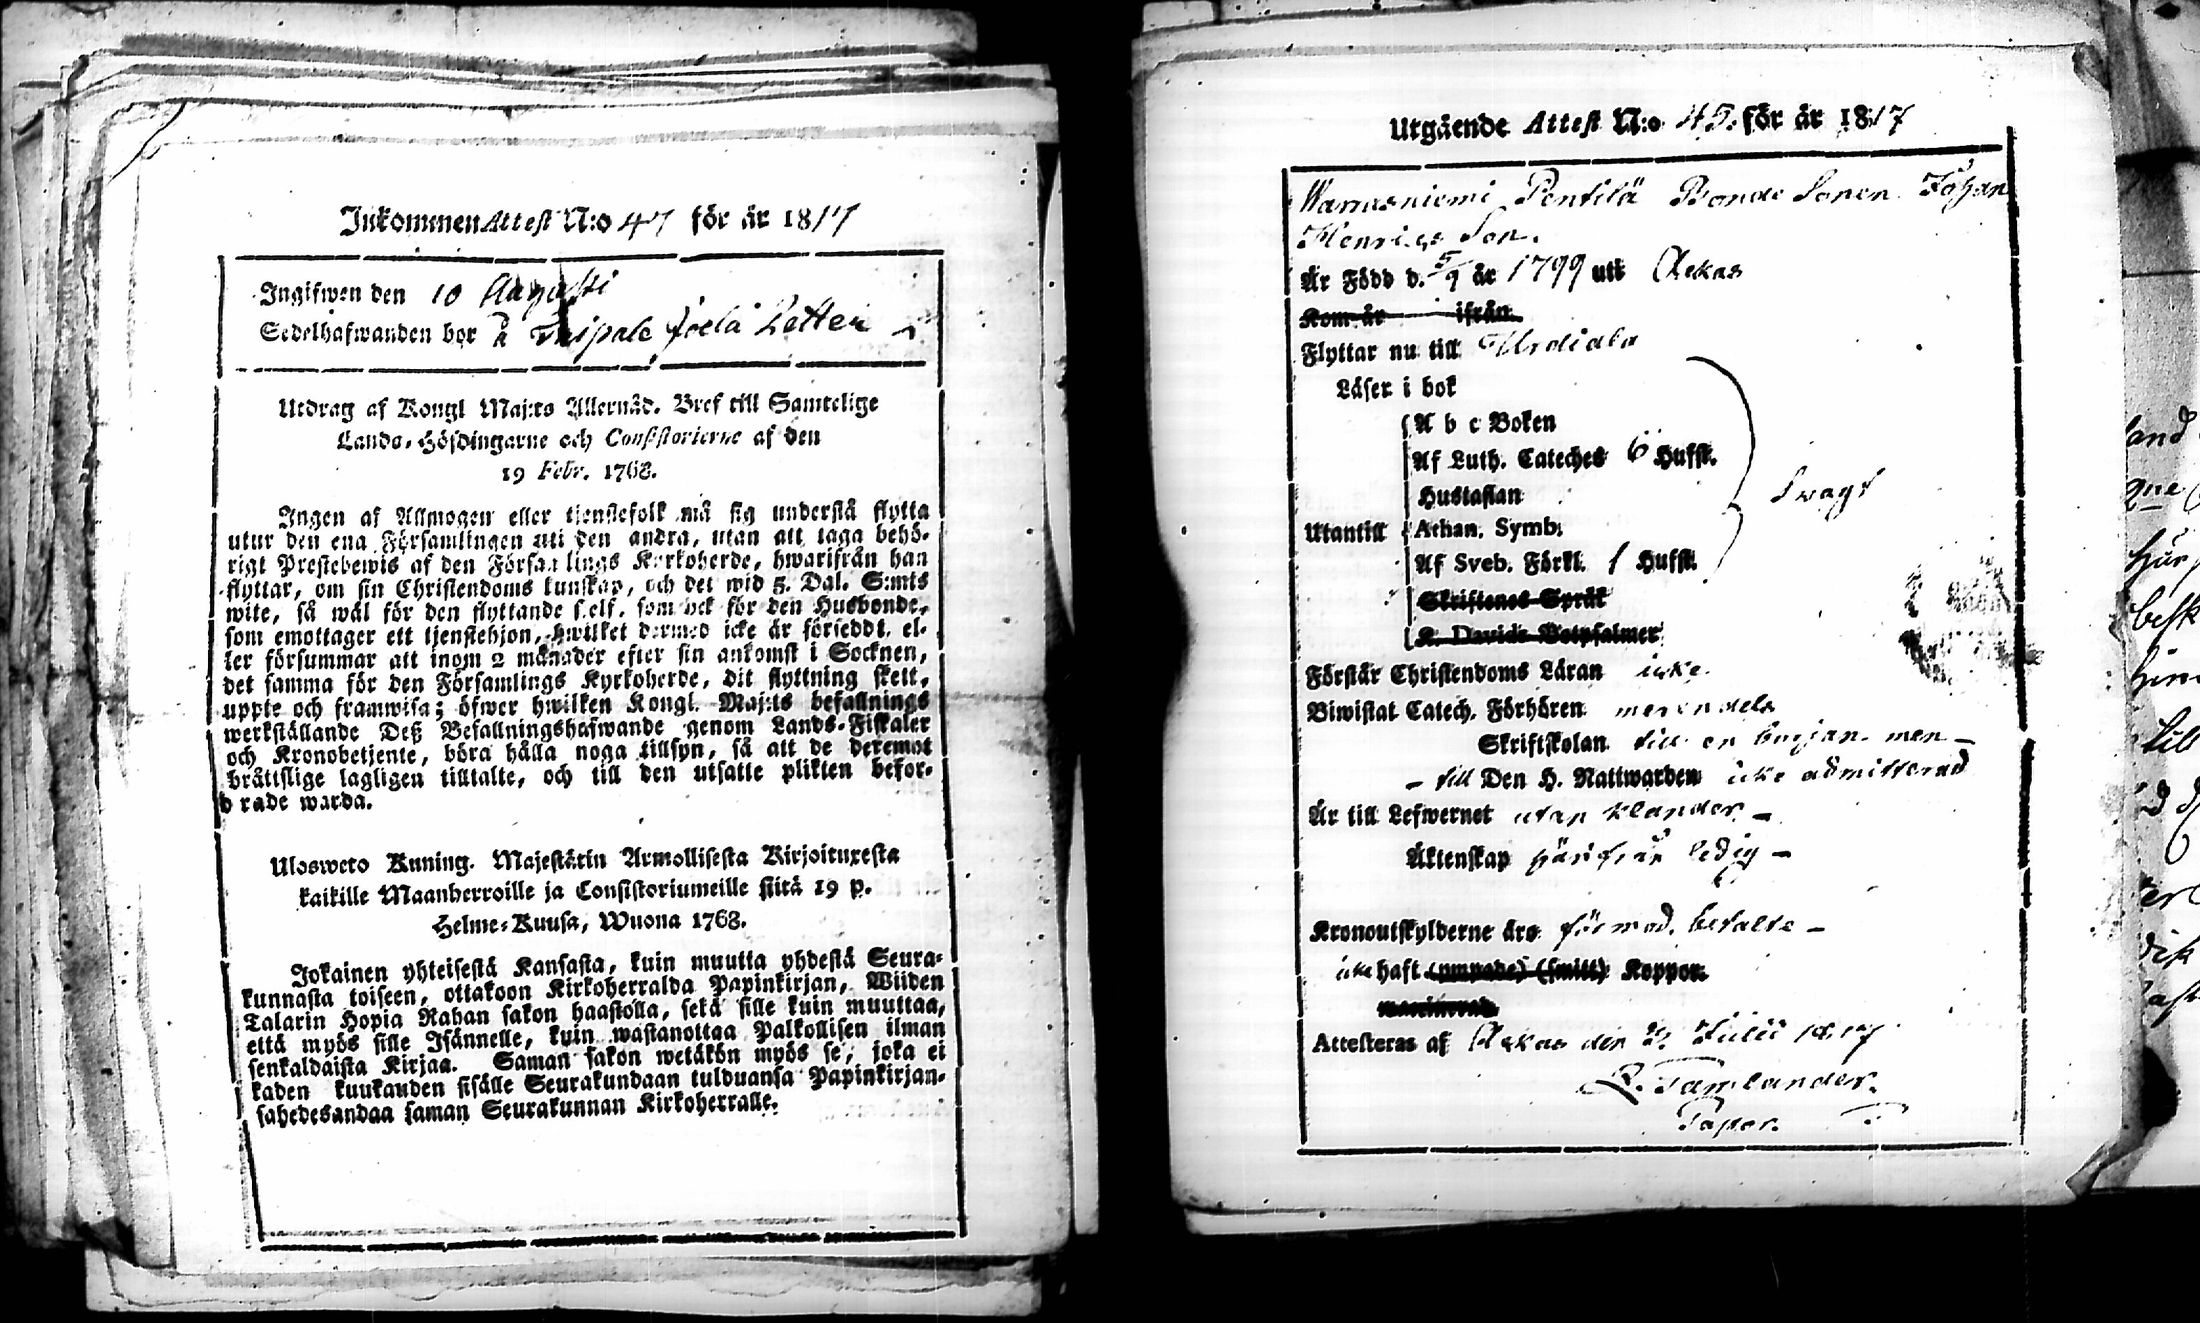 Inkommen Attest N:o 47 för år 1817
Ingifwen den 10 Augusti
Sedelhafwanden bor å
Utdrag af Kongl Maj:ts Allernåd. Bref till Samtelige
Lands-Höfdingarne och Consistorierne af den
19 Febr. 1768.
Ingen af Allmogen eller tjenstefolk må sig understå flytta
utur den ena Församlingen uti den andra, utan att taga behö-
rigt Prestebewis af den Församlings Kyrkoherde, hwarifrån han
flyttar, om sin Christendoms kunskap, och det wid 5. Dal. S:mts
wite, så wäl för den flyttande sjelf, som ock för den Husbonde,
som emottager ett tjenstehjon, hwilket dermed icke är förseddt, el-
ler försummar att inom 2 månader efter sin ankomst i Socknen,
det samma för den Församlings Kyrkoherde, dit flyttning skett,
uppte och framwisa; öfwer hwilken Kongl. Maj:ts befallnings
werkställande Deß Befallningshafwande genom Lands-Fiskaler
och Kronobetjente, böra hålla noga tillsyn, så att de deremot
bråttslige lagligen tilltalte, och till den utsatte plikten befor-
drade warda.
Ulosweto Kuning. Majestätin Armollisesta Kirjoituxesta
kaikille Maanherroille ja Consistoriumeille siitä 19 p.
Helme-Kuusa, Wuona 1768.
Jokainen yhteisestä Kansasta, kuin muutta yhdestä Seura-
kunnasta toiseen, ottakoon Kirkoherralda Papinkirjan, Wiiden
Talarin Hopia Rahan sakon haastolla, sekä sille kuin muuttaa,
että myös sille Isännelle, kuin wastanottaa Palkollisen ilman
senkaldaista Kirjaa. Saman sakon wetäkön myös se, joka ei
kaden kuukauden sisälle Seurakundaan tulduansa Papinkirjan-
sahedesandaa saman Seurakunnan Kirkoherralle.
Utgående Attest N:o 45. för år 1817
Pentilä Bonde Sonen Johan
Henrics Son.
Är Född d. 5/9 år 1799 uti Ackas
Kom år ifrån
Flyttar nu till Urdiala
Läser i bok
A b c Boken
Af Luth. Cateches 6 Hufst.
Hustaflan
Swagt
Utantill Athan. Symb.
Af Sveb. Förkl. 1 Hufst.
Skriftenes Språk
K. Davids Botpsalmer
Förstår Christendoms Läran icke.
Biwistat Catech. Förhören merendels
Skriftskolan till en början men -
- till Den H. Nattwarden icke admitterad
Är till Lefwernet utan klander -
Äktenskap härifrån ledig -
Kronoutskylderne äro förmod. betalte -
icke haft (ympade) (smitt) Koppor.
Attesteras af Ackas den Julii 1817